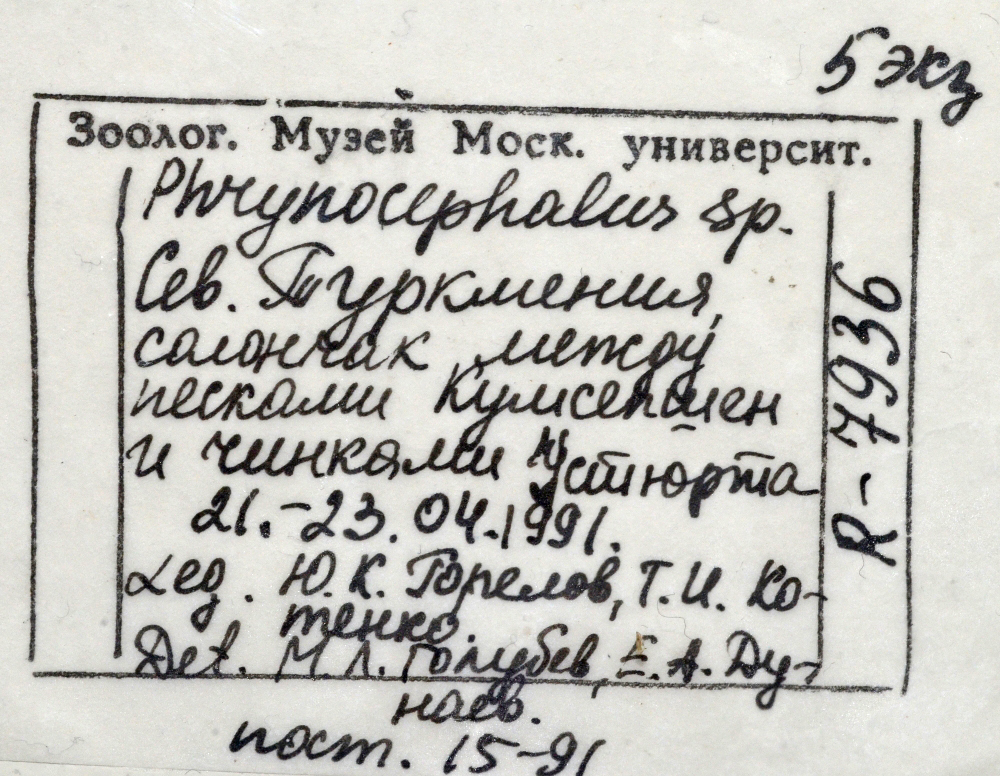 5 экз
Зоолог. Музей Моск. университ.
Phrynocephalus sp.
Сев. Туркмения,
солончак между
песками Кумсепшен
и чинками Устюрта
21.-23.04.1991.
Leg. Ю.К. Горелов, Т.И. Ко-
тенко.
Det. М.Л. Голубев, Е.А. Ду-
наев.
пост. 15-91
R-7936